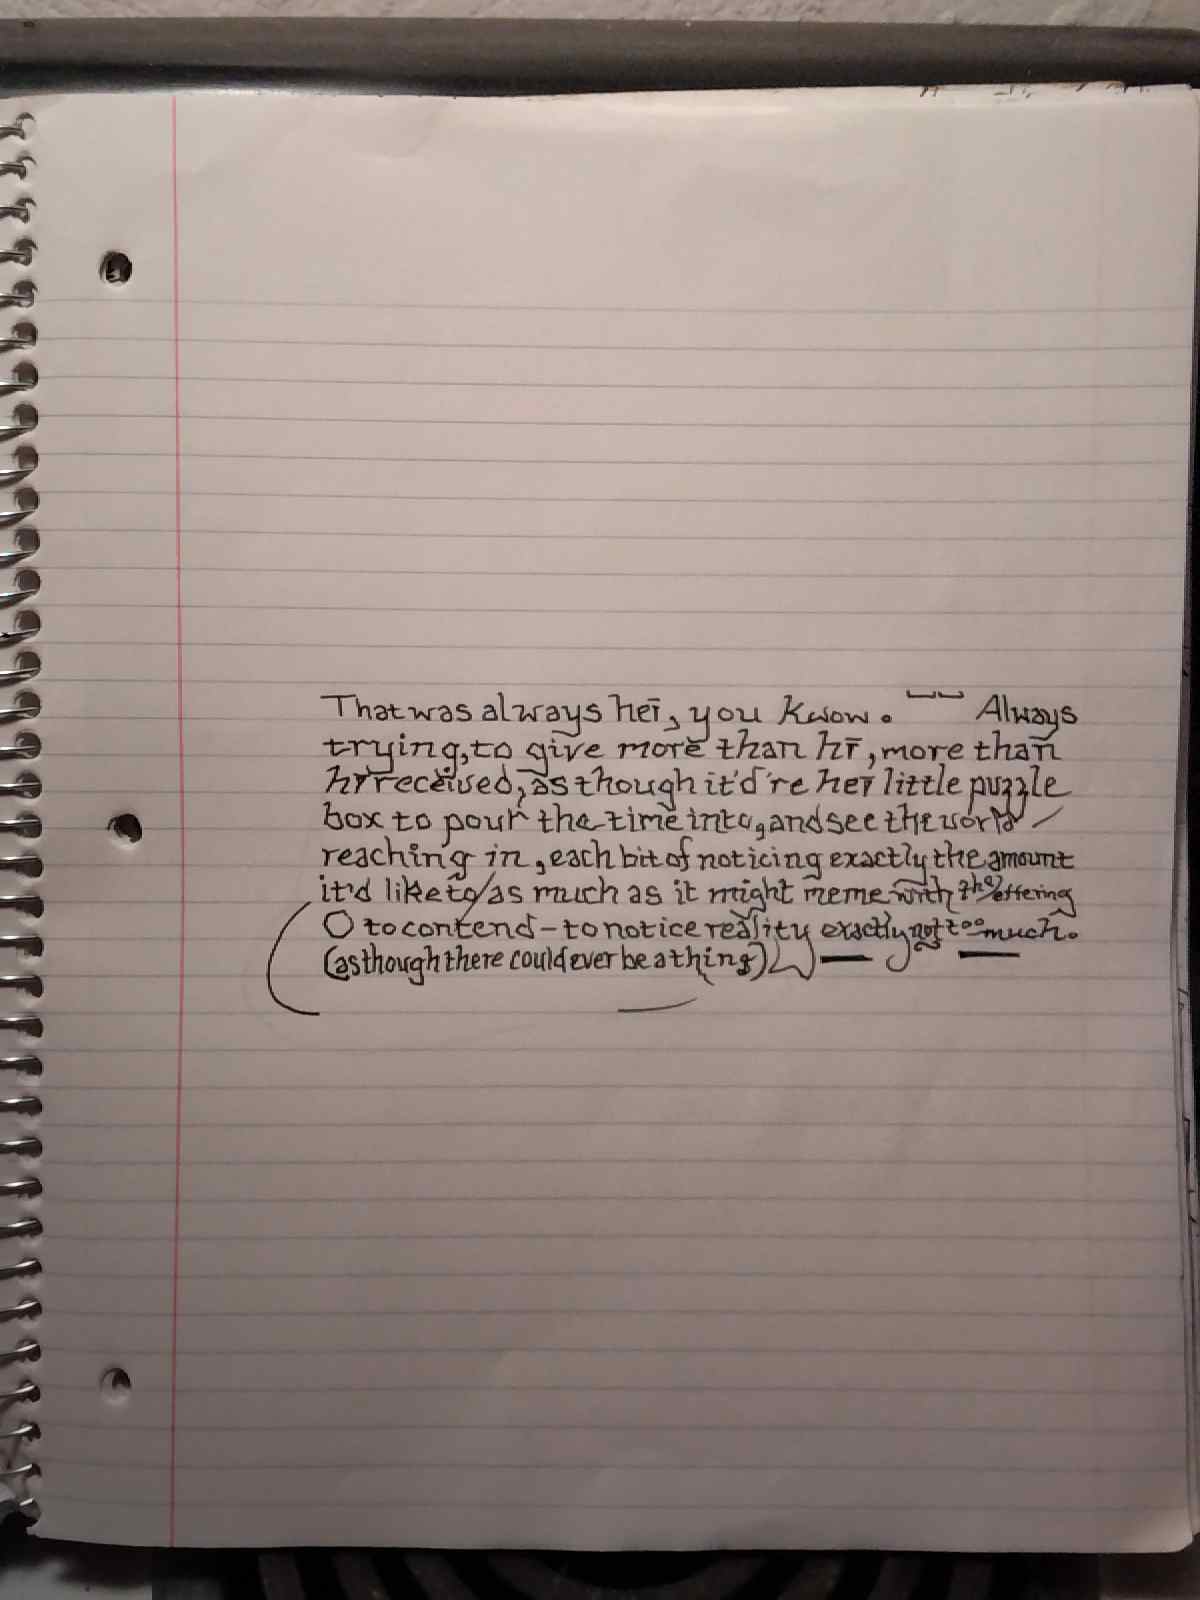 That was always her, you know. Always
trying, to give more than hr, more than
hr received, as though it'd're her little puzzle
box to pour the time into, and see the world
reaching in, each bit of noticing exactly the amount
it'd like to/as much as it might meme with the offering
O to contend - to notice reality exactly not too much.
(as though there could ever be a thing)